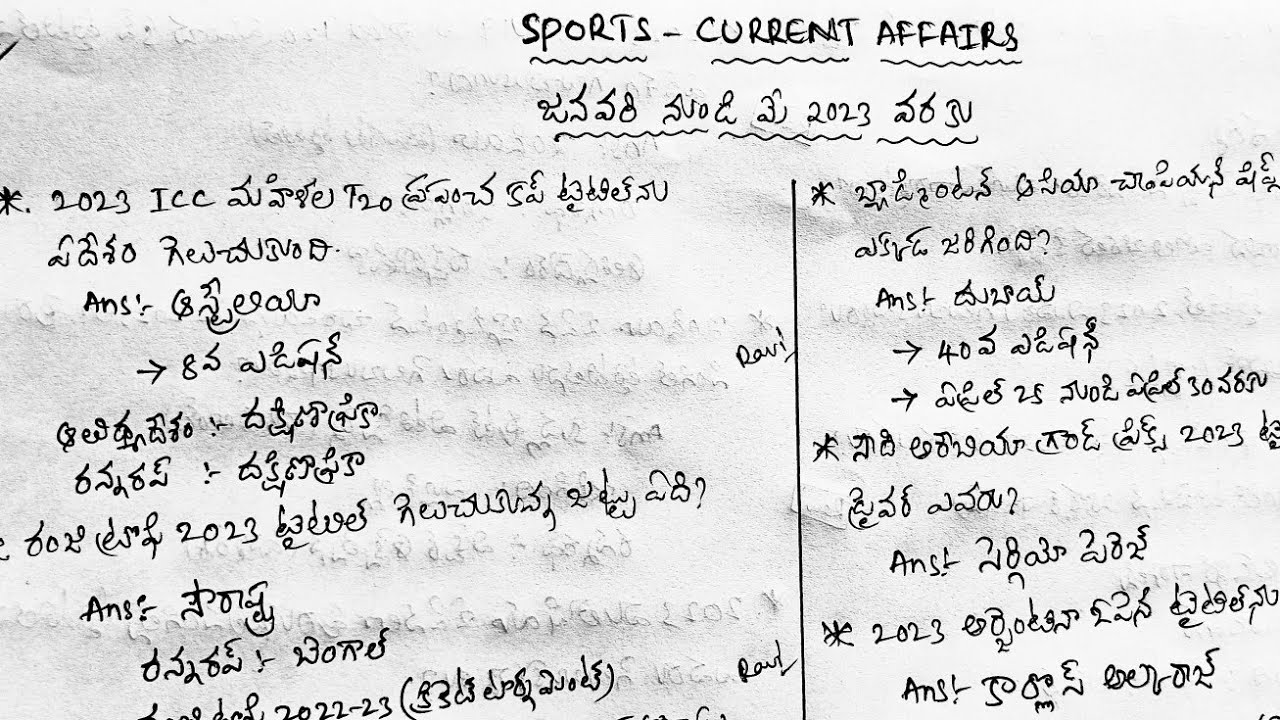 SPORTS - CURRENT AFFAIRS
జనవరి నుండి మే 2023 వరకు
*. 2023 ICC మహిళల T20 ప్రపంచ కప్ టైటిల్‌ను
ఏదేశం గెలుచుకుంది.
Ans:- ఆస్ట్రేలియా
→ 8వ ఎడిషన్
ఆతిథ్యదేశం :- దక్షిణాఫ్రికా
రన్నరప్ :- దక్షిణాఫ్రికా
రంజీ ట్రోఫీ 2023 టైటిల్ గెలుచుకున్న జట్టు ఏది?
Ans:- సౌరాష్ట్ర
రన్నరప్ :- బెంగాల్
2022-23 (క్రికెట్ టోర్నమెంట్)
Ravi
Ravi
* బ్యాడ్మింటన్ ఆసియా చాంపియన్ షిప్
ఎక్కడ జరిగింది?
Ans:- దుబాయ్
→ 40వ ఎడిషన్
→ ఏప్రిల్ 25 నుండి ఏప్రిల్ 30 వరకు
* సౌది అరేబియా గ్రాండ్ ప్రిక్స్ 2023
డ్రైవర్ ఎవరు?
Ans:- సెర్గియో పెరెజ్
* 2023 అర్జెంటీనా ఓపెన్ టైటిల్‌ను
Ans:- కార్లోస్ అల్కారాజ్